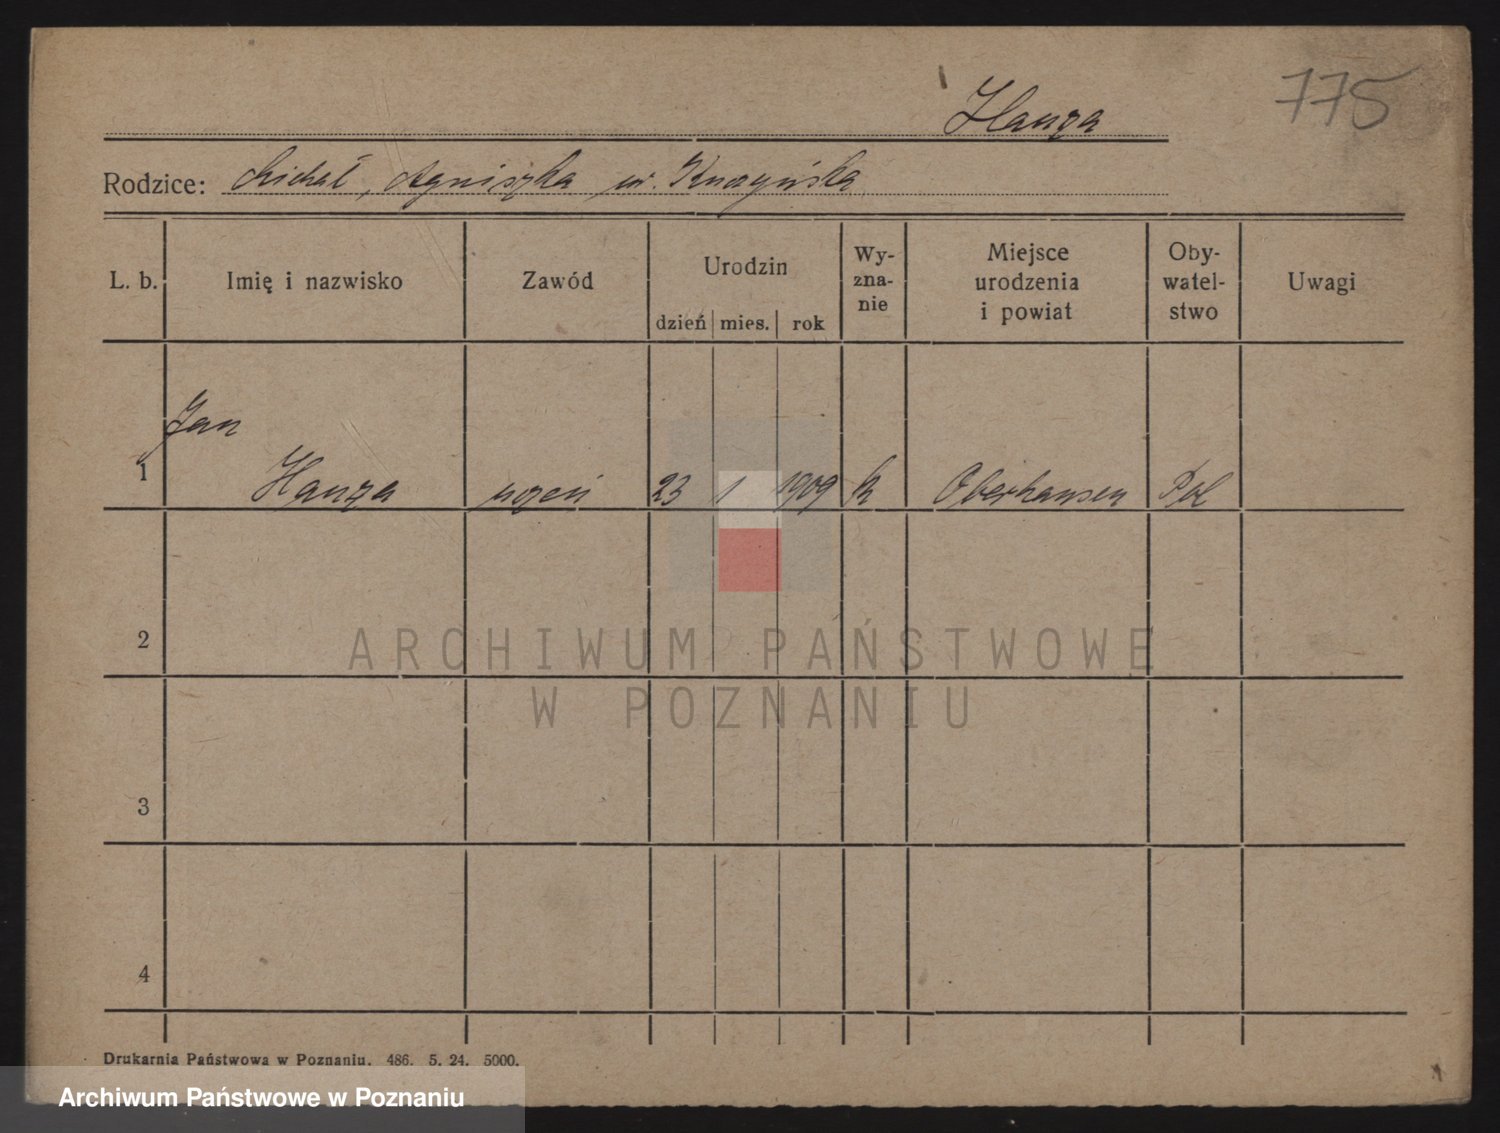 775
Hanza
Rodzice: Michał, Agnieszka ur.
L. b. Imię i nazwisko Zawód Urodzin dzień mies. rok Wy-zna-nie Miejsce urodzenia i powiat Oby-watel-stwo Uwagi
Jan
1 Hanza uczeń 23 1 1909 k Oberhausen Pol
2
ARCHIWUM PAŃSTWOWE
W POZNANIU
3
4
Drukarnia Państwowa w Poznaniu. 486. 5. 24. 5000.
Archiwum Państwowe w Poznaniu